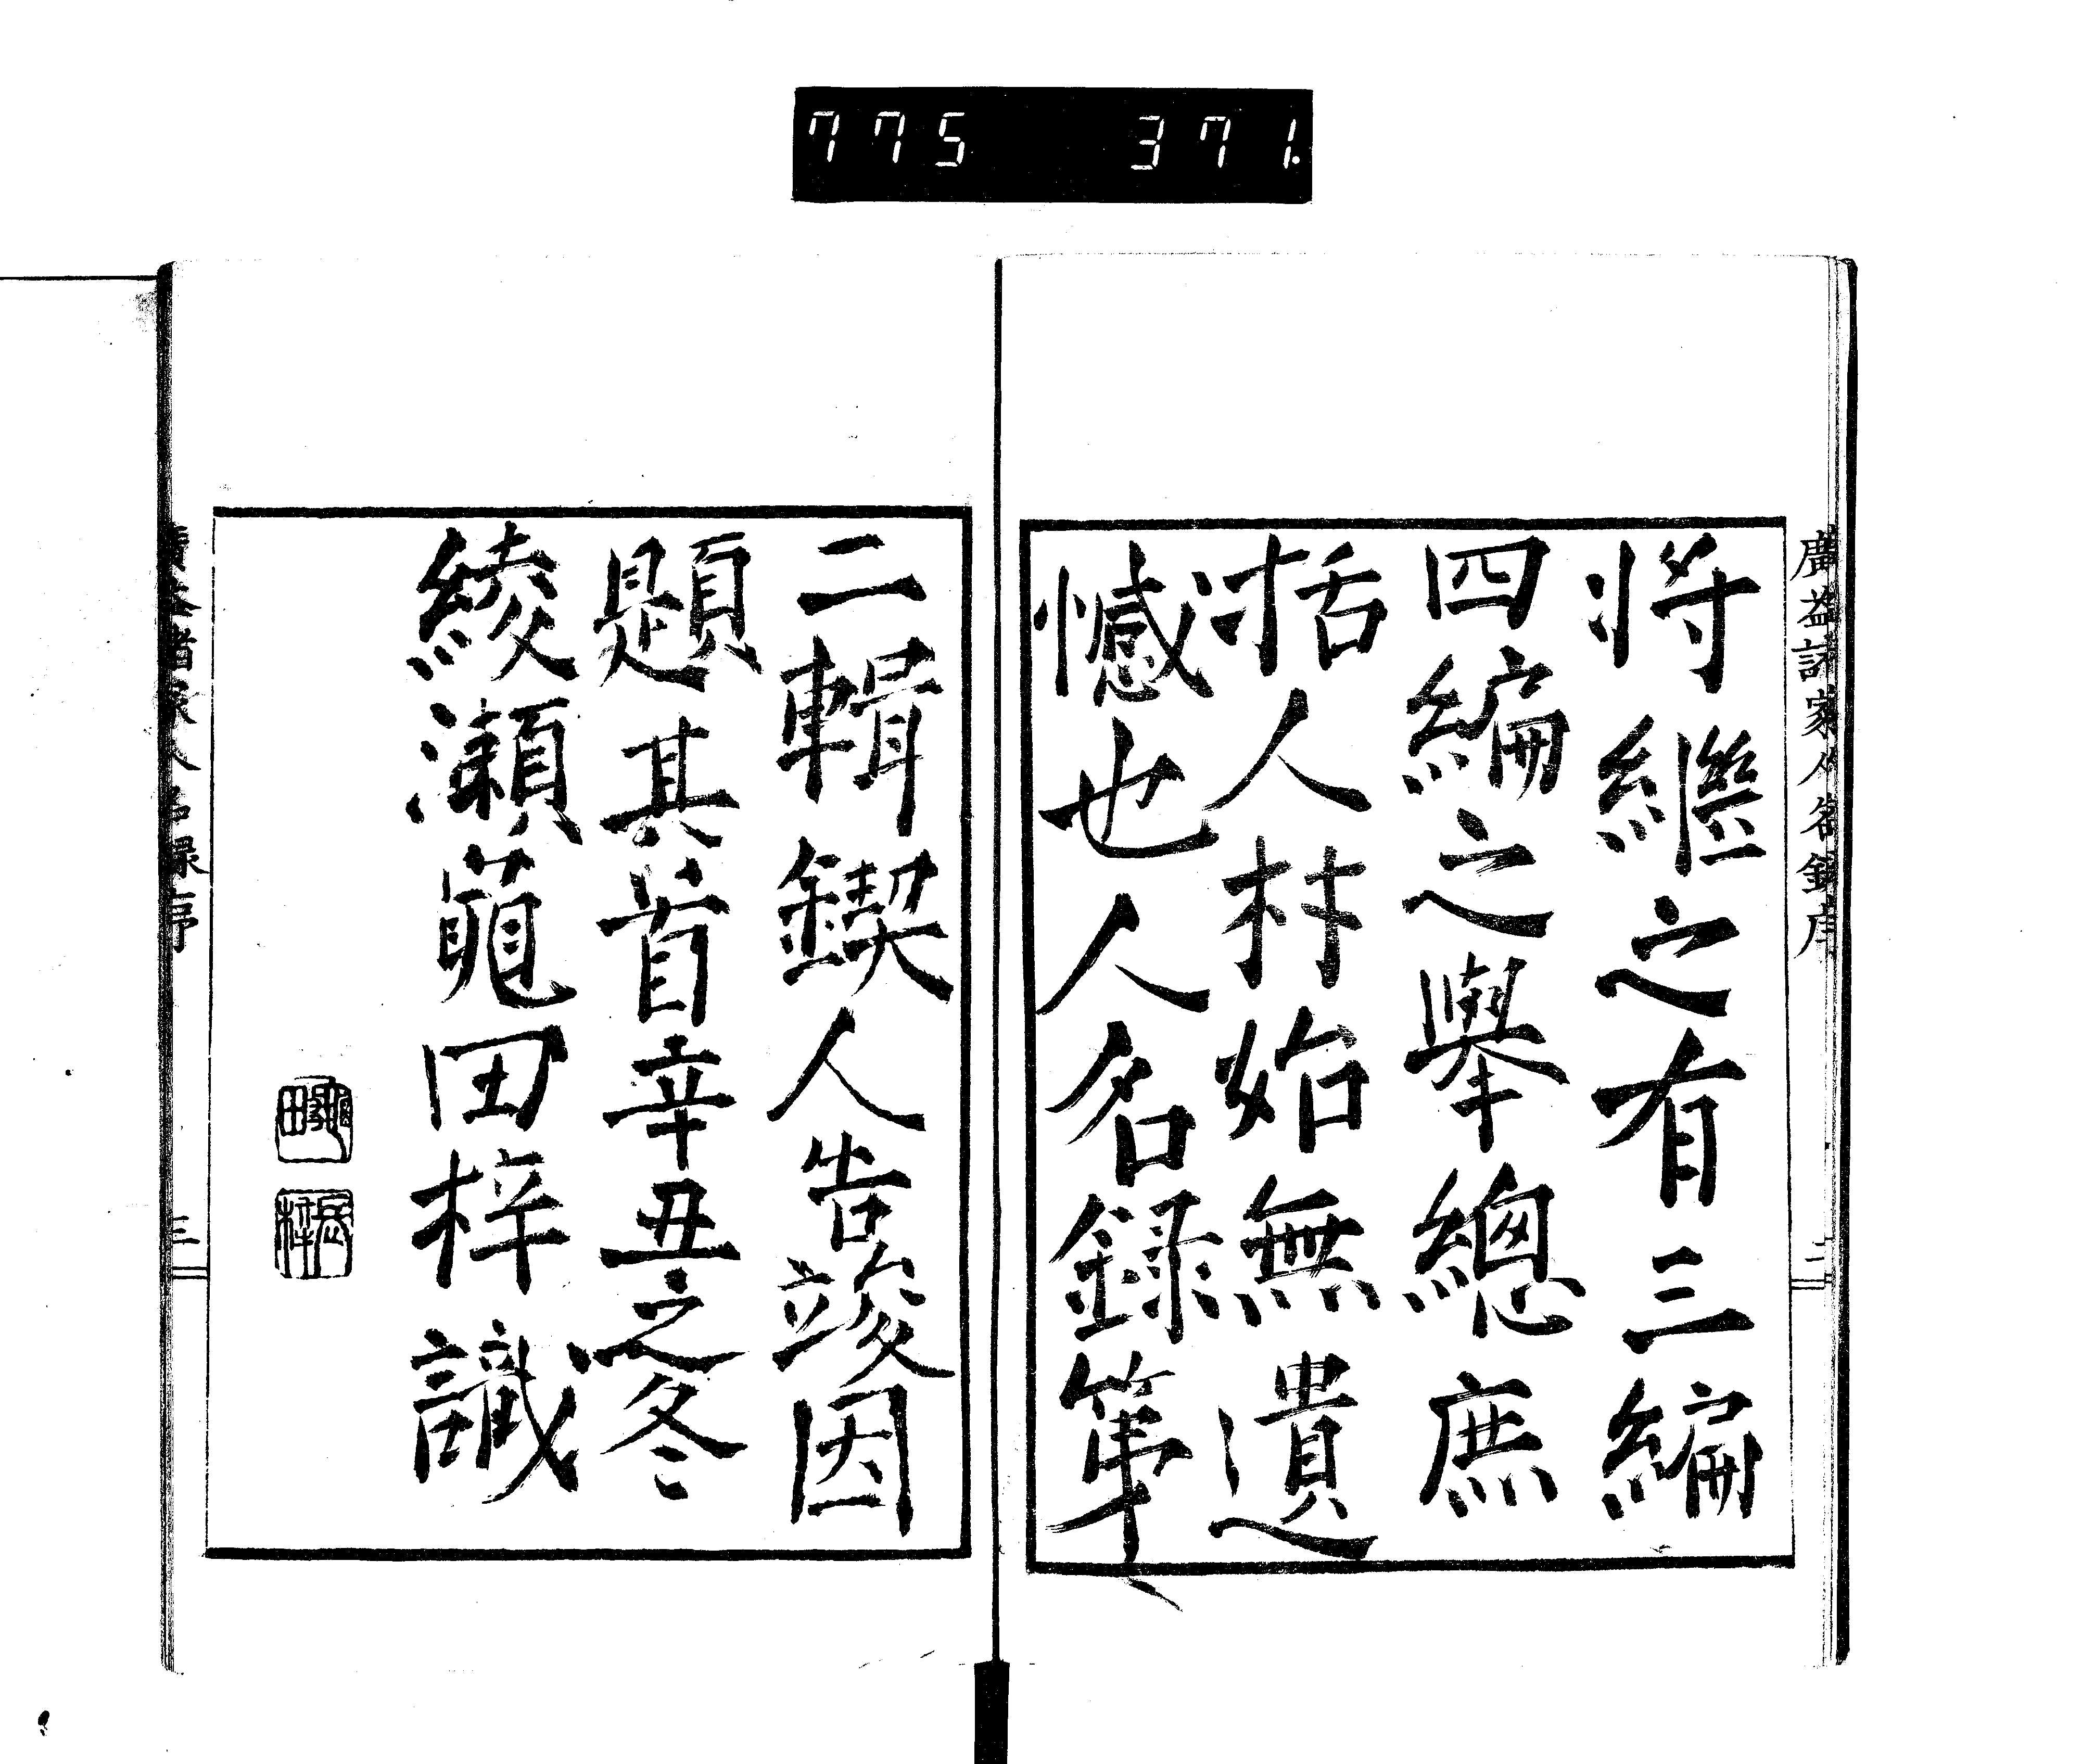 775 371.
廣益諸家人名録序 二
将繼之有三編
四編之舉總庶
括人材始無遺
憾也人名録第
二輯鍥人告竣因
題其首辛丑之冬
綾瀬龜田梓識
廣益諸家人名録序 三